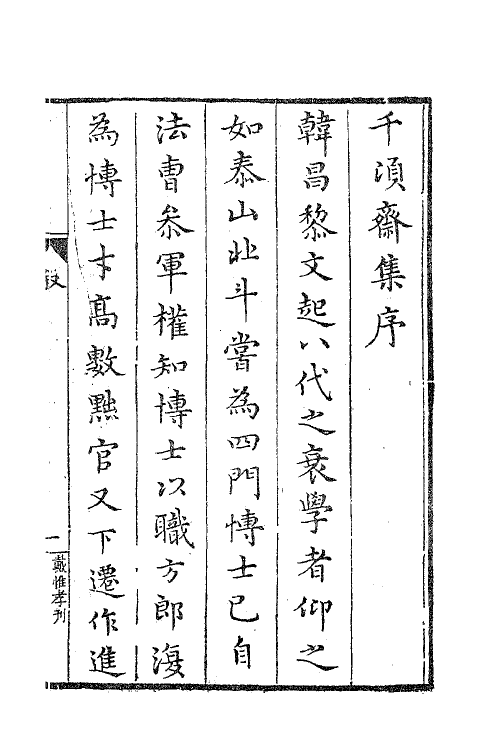 千頃齋集序
韓昌黎文起八代之衰學者仰之
如泰山北斗嘗為四門博士已自
法曹叅軍權知博士以職方郎復
為博士才高數黜官又下遷作進
叙
一
戴惟孝刊